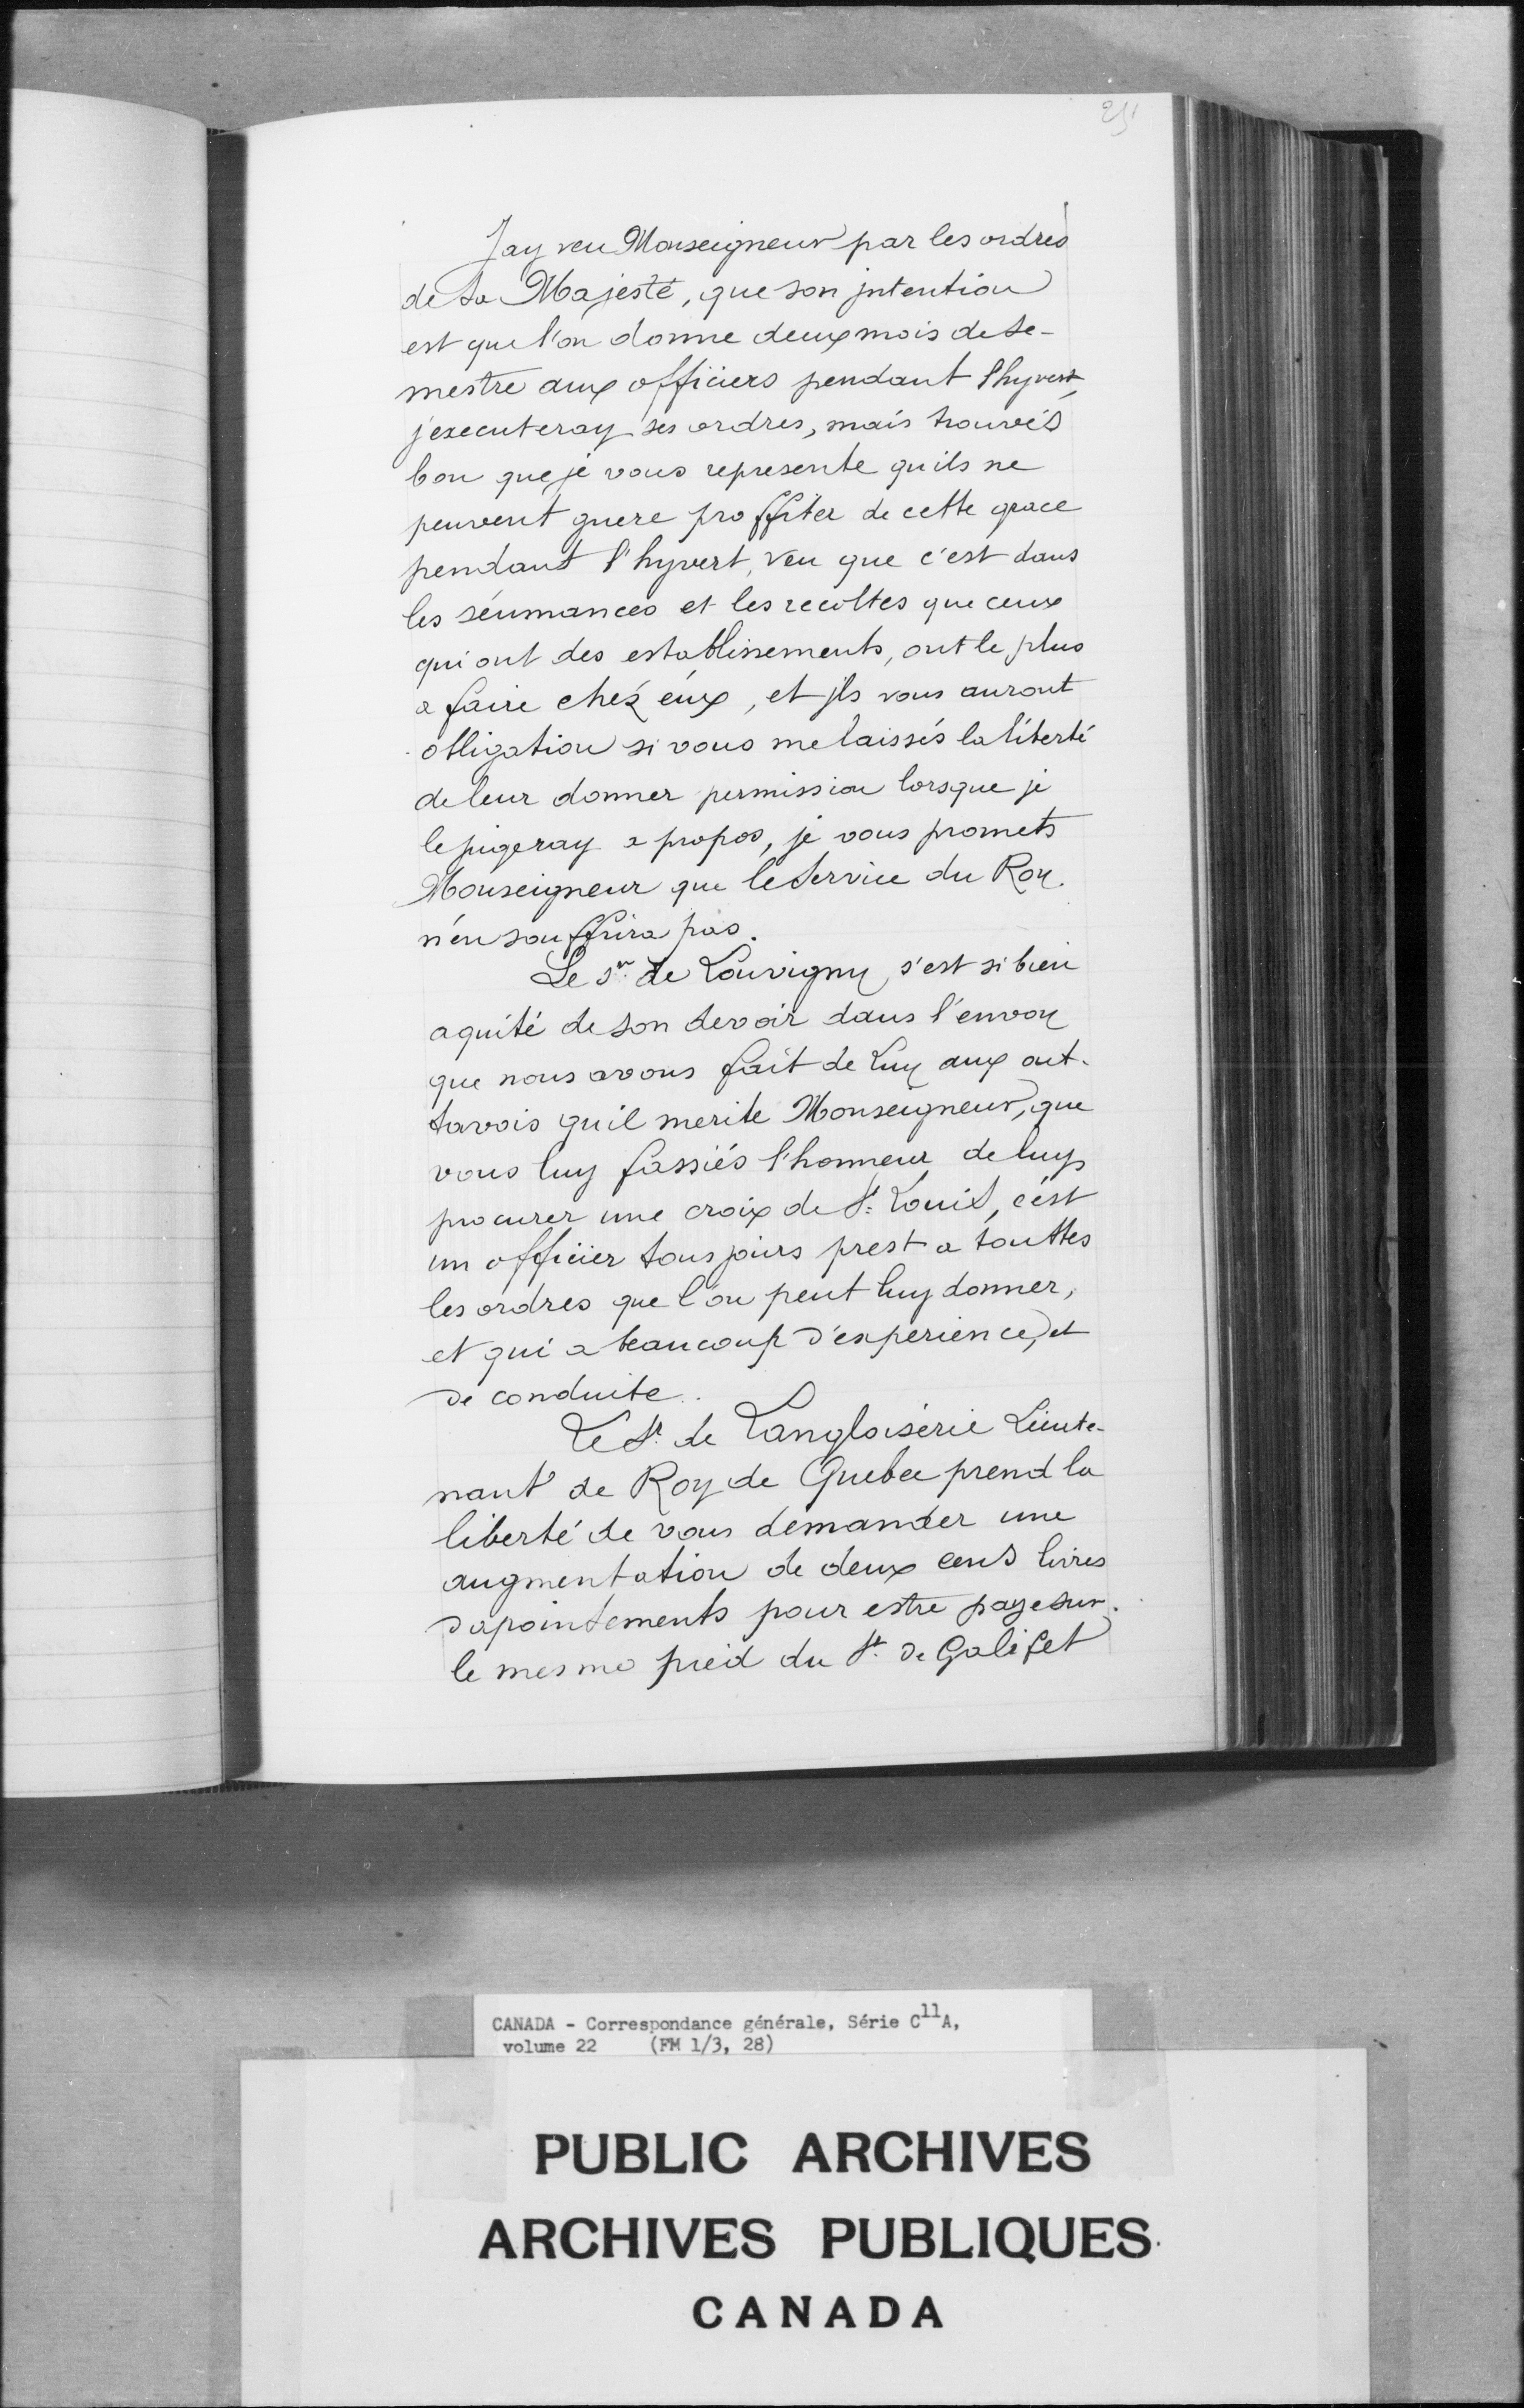 251
Jay veu Monseigneur par les ordres
de Sa Majesté, que son jntention
est que l'on donne deux mois de se-
mestre aux officiers pendant l'hyvert,
j'executeray ses ordres, mais trouvés
bon que je vous represente quils ne
peuvent guere proffiter de cette grace
pendant l'hyvert, veu que c'est dans
les séumances et les recoltes que ceux
qui ont des establissements, ont le plus
a faire chéz eux, et jls vous auront
obligation si vous me laissés la liberté
de leur donner permission lorsque je
le jugeray a propos, je vous promets
Monseigneur que le Service du Roy
n'en souffrira pas.
Le sr. de Louvigny s'est si bien
aquité de son devoir dans l'envoy
que nous avons fait de Luy aux out-
tavois quil merite Monseigneur, que
vous luy fassiés l'honneur de luy
procurer une croix de St. Louis, c'est
un officier tousjours prest a touttes
les ordres que l'on peut luy donner,
et qui a beaucoup d'experience, et
de conduite.
Le Sr. de Langloiserie Lieute-
nant de Roy de Quebec prend la
liberté de vous demander une
augmentation de deux cens livres
dapointements pour estre paye sur
le mesme pied du Sr. de Galifet
CANADA - Correspondance générale, Série C11A,
volume 22 (FM 1/3, 28)
PUBLIC ARCHIVES
ARCHIVES PUBLIQUES
CANADA